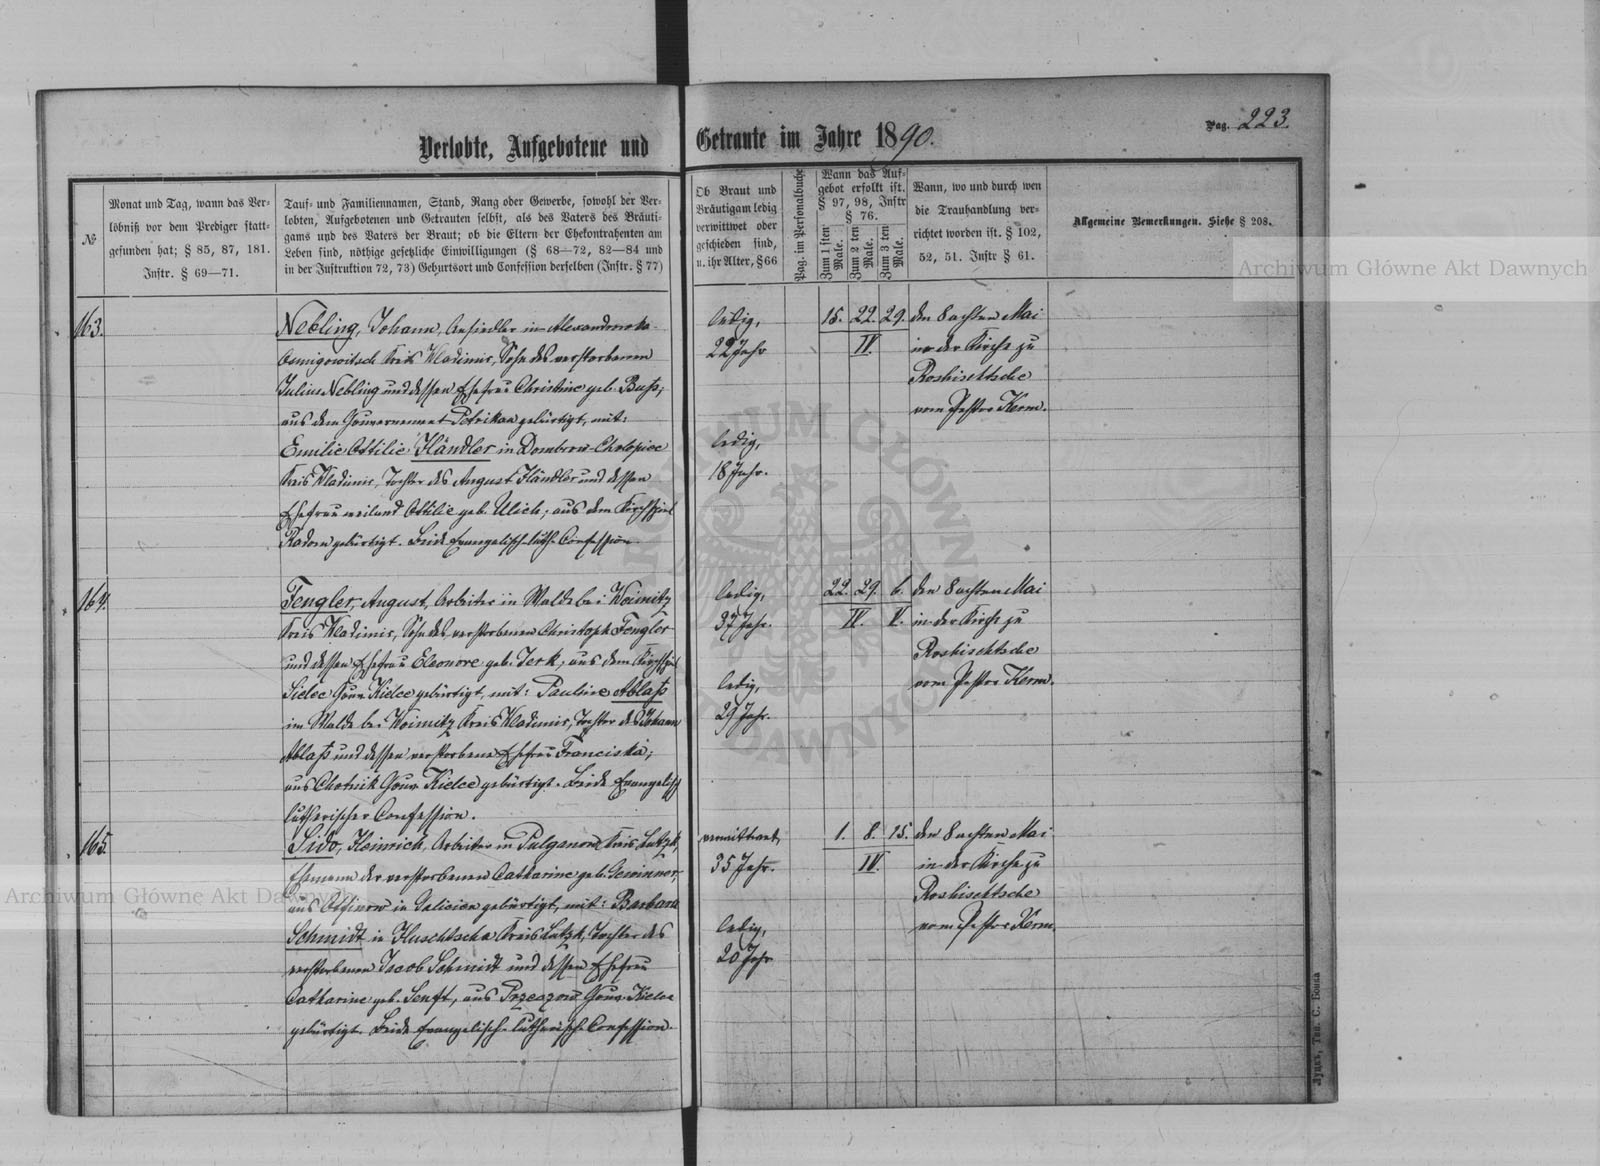 Verlobte, Aufgebotene und Getraute im Jahre 1890.
Pag. 223.
№
Monat und Tag, wann das Ver-
löbniß vor dem Prediger statt-
gefunden hat; § 85, 87, 181.
Instr. § 69—71.
Tauf- und Familiennamen, Stand, Rang oder Gewerbe, sowohl der Ver-
lobten, Aufgebotenen und Getrauten selbst, als des Vaters des Bräuti-
gams und des Vaters der Braut; ob die Eltern der Ehekontrahenten am
Leben sind, nöthige gesetzliche Einwilligungen (§ 68—72, 82—84 und
in der Instruktion 72, 73) Geburtsort und Confession derselben (Instr. § 77)
Ob Braut und
Bräutigam ledig
verwittwet oder
geschieden sind,
u. ihr Alter, § 66
Pag. im Personalbuche
Wann das Auf-
gebot erfolkt ist.
§ 97, 98, Instr
§ 76.
Zum 1 sten Male.
Zum 2 ten Male.
Zum 3 ten Male.
Wann, wo und durch wen
die Trauhandlung ver-
richtet worden ist. § 102,
52, 51. Instr § 61.
Allgemeine Bemerkungen. Siehe § 208.
163.
Nebling, Johann, Ansiedler in Alexandrowka-
Kreis Wladimir, Sohn des verstorbenen
Julius Nebling und dessen Ehefrau Christine geb. Buss;
aus dem Gouvernement Petrikau gebürtigt, mit:
Emilie Ottilie Händler in Dombrow-Cholopiec
Kreis Wladimir, Tochter des August Händler und dessen
Ehefrau weiland Ottilie geb. Ulich; aus dem Kirchspiel
Radom gebürtigt. Beide Evangelisch-luth. Confession.
ledig,
22 Jahr
ledig,
18 Jahr.
15. 22. 29.
IV.
den 8 achten Mai
in der Kirche zu
Roshischtsche
vom Pastor Kerm.
164.
Fengler, August, Arbeiter im Walde bei Woimitz
Kreis Wladimir, Sohn des verstorbenen Christoph Fengler
und dessen Ehefrau Eleonore geb. Jerk, aus dem Kirchspiel
Sielec Gouv. Kielce gebürtigt, mit: Pauline Ablass
im Walde bei Woimitz Kreis Wladimir, Tochter des Johann
Ablass und dessen verstorbene Ehefrau Franciska;
aus Chotnik Gouv. Kielce gebürtigt. Beide Evangelisch
lutherischer Confession.
ledig,
37 Jahr.
ledig,
29 Jahr.
22. 29. 6.
IV. V.
den 8 achten Mai
in der Kirche zu
Roshischtsche
vom Pastor Kerm.
165.
Sido, Heinrich, Arbeiter in Pulganow Kreis Lutzk,
Ehemann der verstorbenen Catharine geb.
aus in Galicien gebürtigt, mit: Barbara
Schmidt in Huschtscha Kreis Lutzk, Tochter des
verstorbenen Jacob Schmidt und dessen Ehefrau
Catharine geb. Senft, aus Gouv. Kielce
gebürtigt. Beide Evangelisch-lutherisch. Confession.
verwittwet,
35 Jahr.
ledig,
20 Jahr
1. 8. 15.
IV.
den 8 achten Mai
in der Kirche zu
Roshischtsche
vom Pastor Kerm.
Луцкъ, Тип. С. Бонка
Archiwum Główne Akt Dawnych
Archiwum Główne Akt Dawnych
ARCHIWUM GŁÓWNE AKT DAWNYCH